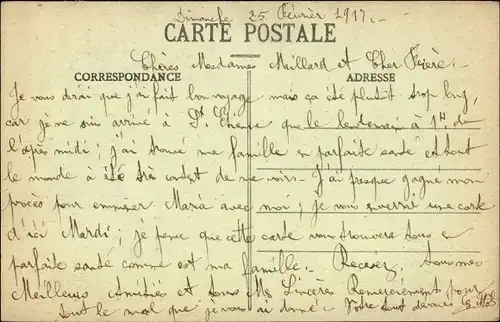 Dimanche 25 Février 1917.
CARTE POSTALE
Chères Madames Maillard et Cher Frère;
CORRESPONDANCE ADRESSE
Je vous dirai que j'ai fait bon voyage mais ça été plutôt trop long,
car je ne sui arrivé à St Etienne que le lendemain à 1H. de
l'après midi; j'ai trouvé ma famille en parfaite santé et tout
le monde à été très content de me voir. J'ai presque gagné mon
procès pour emmener Maria avec moi; je vous enverrai une carte
d'ici Mardi; je pense que cette carte vous trouvera tous en
parfaite santé comme est ma famille. Recevez, tous mes
Meilleurs Amitiés et tous Mes Sincères Remerciement pour
tout le mal que je vous ai donné. Votre tout dévoué